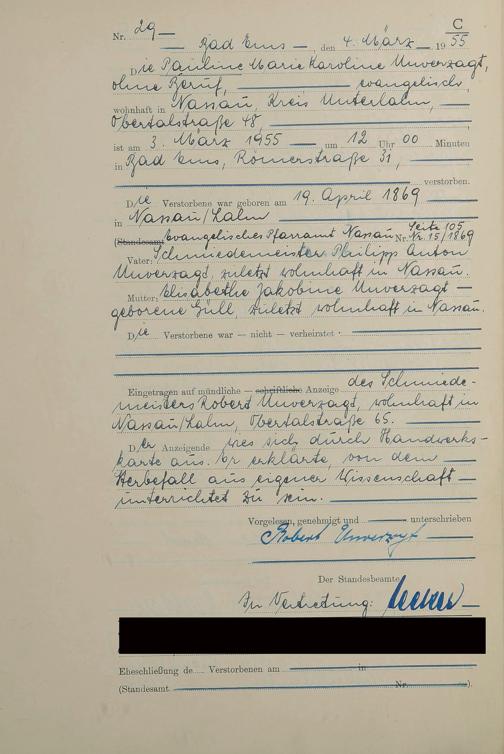 C
Nr. 29
Bad Ems, den 4. März 1955
Die Pauline Marie Karoline Unverzagt,
ohne Beruf, evangelisch,
wohnhaft in Nassau, Kreis Unterlahn,
Obertalstraße 48,
ist am 3. März 1955 um 12 Uhr 00 Minuten
in Bad Ems, Römerstraße 31,
verstorben.
Die Verstorbene war geboren am 19. April 1869
in Nassau/Lahn
(Standesamt Evangelisches Pfarramt Nassau Seite 105 Nr. 15/1869
Vater: Schmiedemeister Philipp Anton
Unverzagt, zuletzt wohnhaft in Nassau.
Mutter: Elisabethe Jakobine Unverzagt
geborene Güll, zuletzt wohnhaft in Nassau.
Die Verstorbene war — nicht — verheiratet
Eingetragen auf mündliche — schriftliche Anzeige des Schmiede-
meisters Robert Unverzagt, wohnhaft in
Nassau/Lahn, Obertalstraße 65.
Der Anzeigende wies sich durch Handwerks-
karte aus. Er erklärte, von dem
Sterbefall aus eigener Wissenschaft
unterrichtet zu sein.
Vorgelesen, genehmigt und unterschrieben
Robert Unverzagt
Der Standesbeamte
In Vertretung:
Eheschließung de Verstorbenen am in
(Standesamt Nr. ).